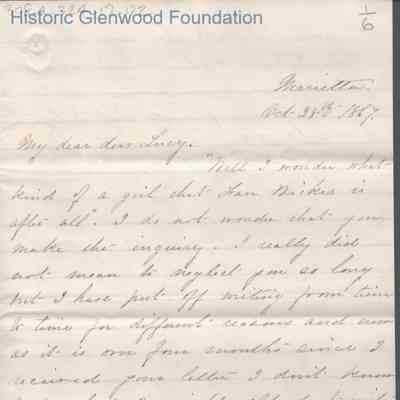 Historic Glenwood Foundation
1/6
Marietta
Oct 28th 1867.
My dear dear Lucy.
"Well I wonder what
kind of a girl that Fan is
after all". I do not wonder that you
make the inquiry. I really did
not mean to neglect you so long
but I have put off writing from time
to time for different reasons and now
as it is over four months since I
received your letter I don't know